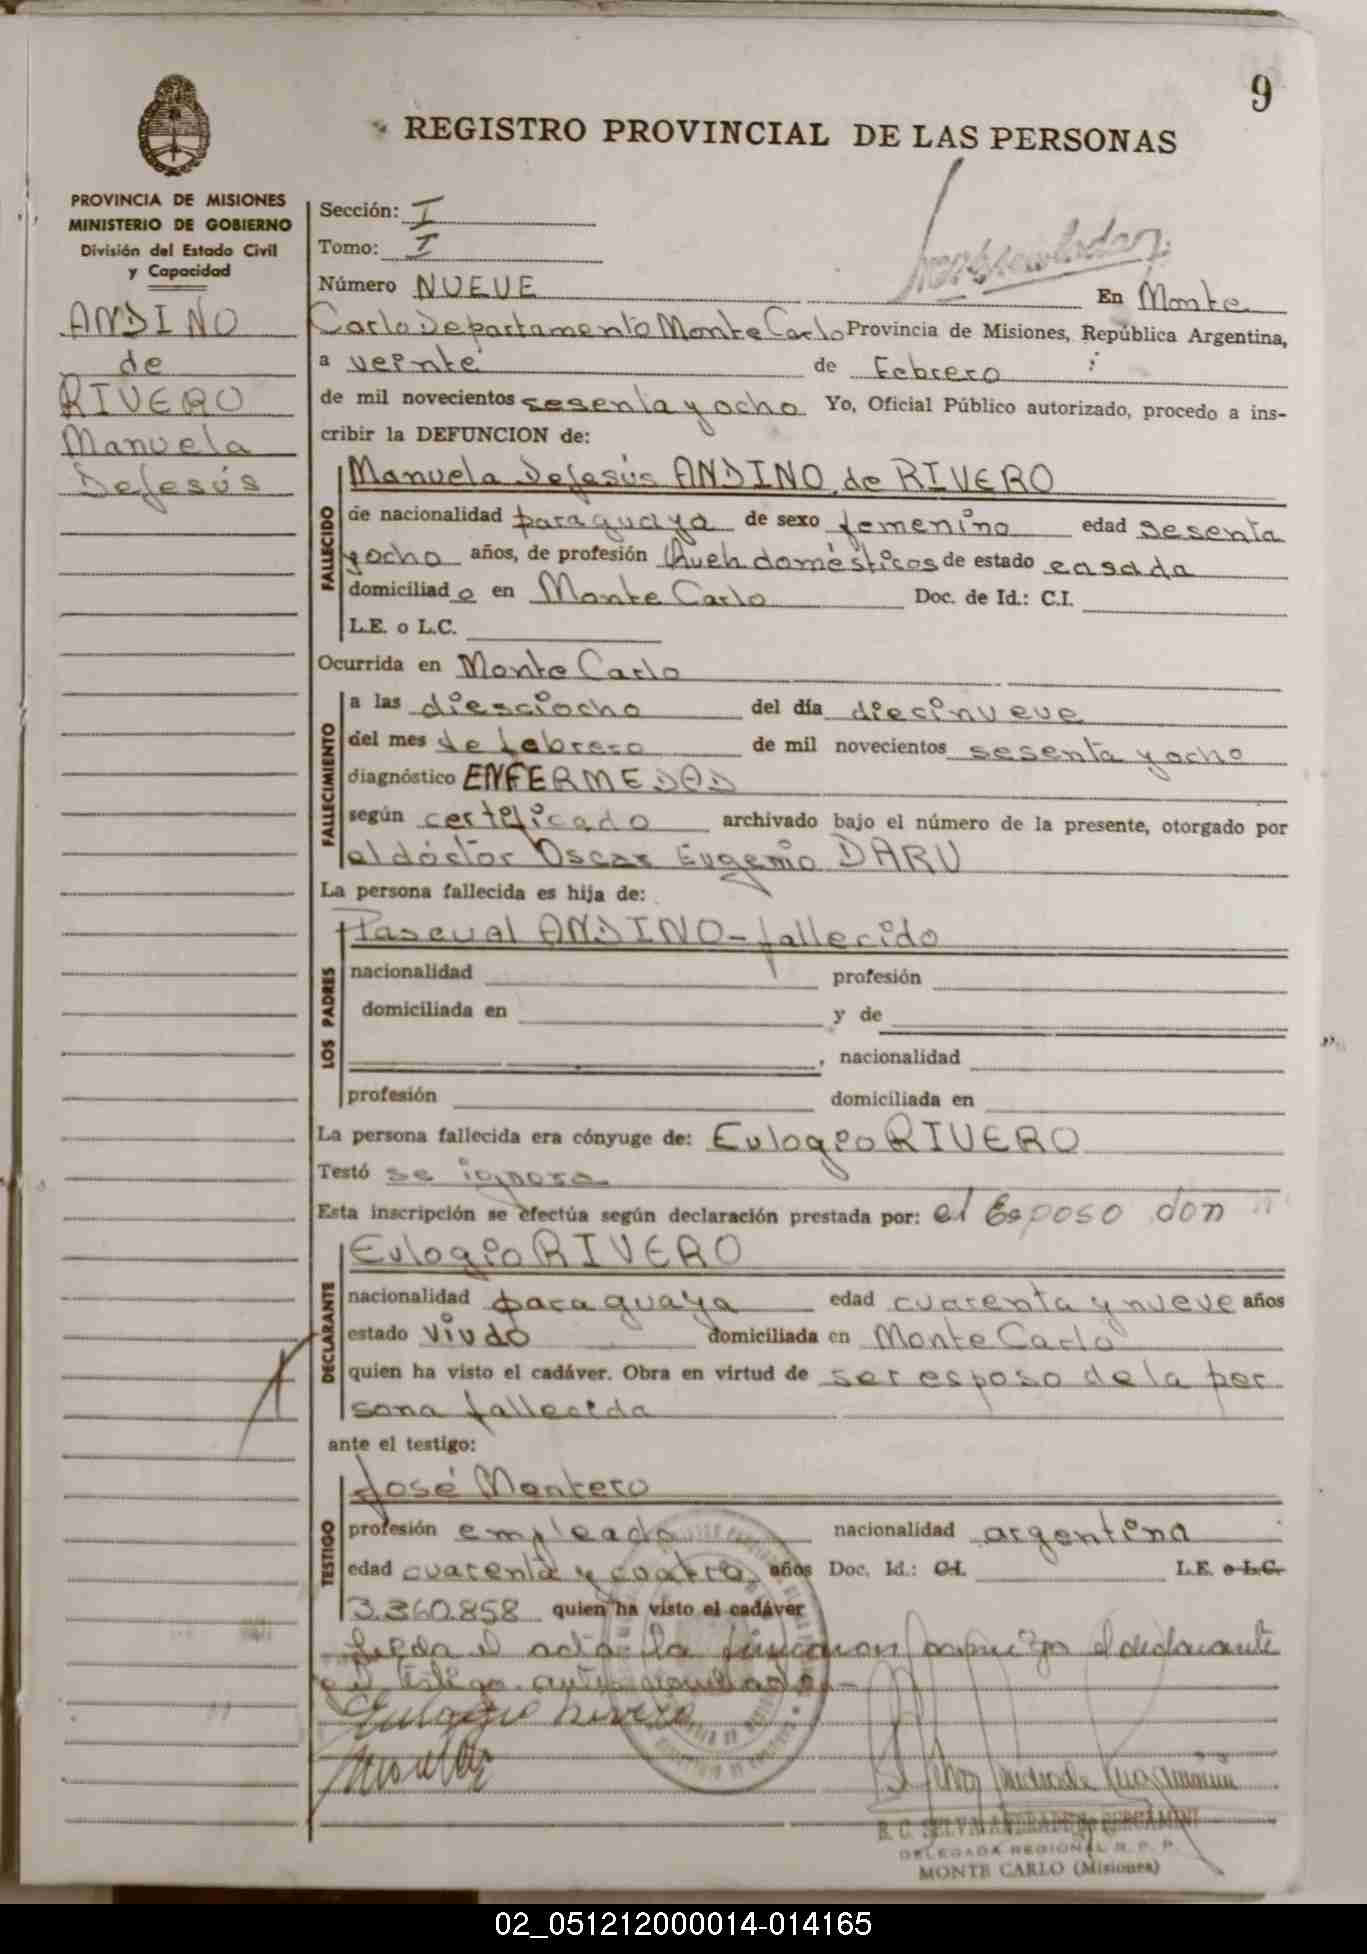 9
REGISTRO PROVINCIAL DE LAS PERSONAS
PROVINCIA DE MISIONES
MINISTERIO DE GOBIERNO
División del Estado Civil
y Capacidad
ANDINO
de
RIVERO
Manuela
DeJesús
Sección: I
Tomo: I
Número NUEVE En Monte
Carlo Departamento Monte Carlo Provincia de Misiones, República Argentina,
a veinte de Febrero
de mil novecientos sesenta y ocho Yo, Oficial Público autorizado, procedo a ins-
cribir la DEFUNCION de:
FALLECIDO
Manuela DeJesús ANDINO de RIVERO
de nacionalidad paraguaya de sexo femenino edad sesenta
y ocho años, de profesión Queh domésticos de estado casada
domiciliado en Monte Carlo Doc. de Id.: C.I.
L.E. o L.C.
Ocurrida en Monte Carlo
FALLECIMIENTO
a las diesciocho del día diecinueve
del mes de febrero de mil novecientos sesenta y ocho
diagnóstico ENFERMEDAD
según certificado archivado bajo el número de la presente, otorgado por
el dóctor Oscar Eugenio DARU
La persona fallecida es hija de:
LOS PADRES
Pascual ANDINO - fallecido
nacionalidad profesión
domiciliada en y de
, nacionalidad
profesión domiciliada en
La persona fallecida era cónyuge de: Eulogio RIVERO
Testó se ignora
Esta inscripción se efectúa según declaración prestada por: el Esposo don
DECLARANTE
Eulogio RIVERO
nacionalidad paraguaya edad cuarenta y nueve años
estado viudo domiciliada en Monte Carlo
quien ha visto el cadáver. Obra en virtud de ser esposo de la per
sona fallecida
ante el testigo:
TESTIGO
José Montero
profesión empleado nacionalidad argentina
edad cuarenta y cuatro años Doc. Id.: C.I. L.E. o L.C.
3.360.858 quien ha visto el cadáver
Leida el acta la firmaron conmigo el declarante
y el testigo antes nombrado.-
Eulogio Rivero
B. C. SELVA ANDRADE de BERGAMINI
DELEGADA REGIONAL R. P. P.
MONTE CARLO (Misiones)
02_051212000014-014165